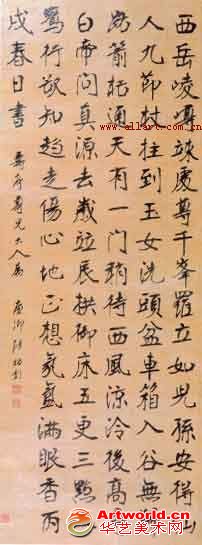 西岳崚嶒竦處尊千峯羅立如兒孫安得仙
人九節杖拄到玉女洗頭盆車箱入谷無歸
路箭栝通天有一門稍待西風涼冷後高尋
白帝問真源去歲茲辰捧御床五更三點入
鵷行欲知趨走傷心地正想氤氳滿眼香丙
戌春日書
尊兄大人屬
www.allart.com.cn
World Art
华艺美术网